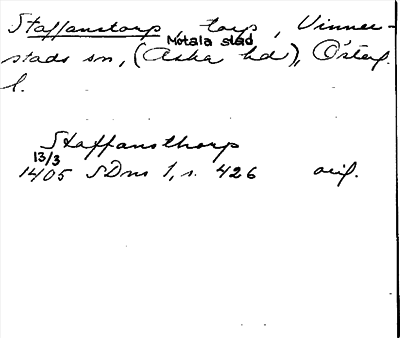 Staffanstorp, torp, Vinner-
Motala stad
stads sn, (Aska hd), Österg.
l.
Staffansthorp
13/3
1405 SDns 1, s. 426 orig.